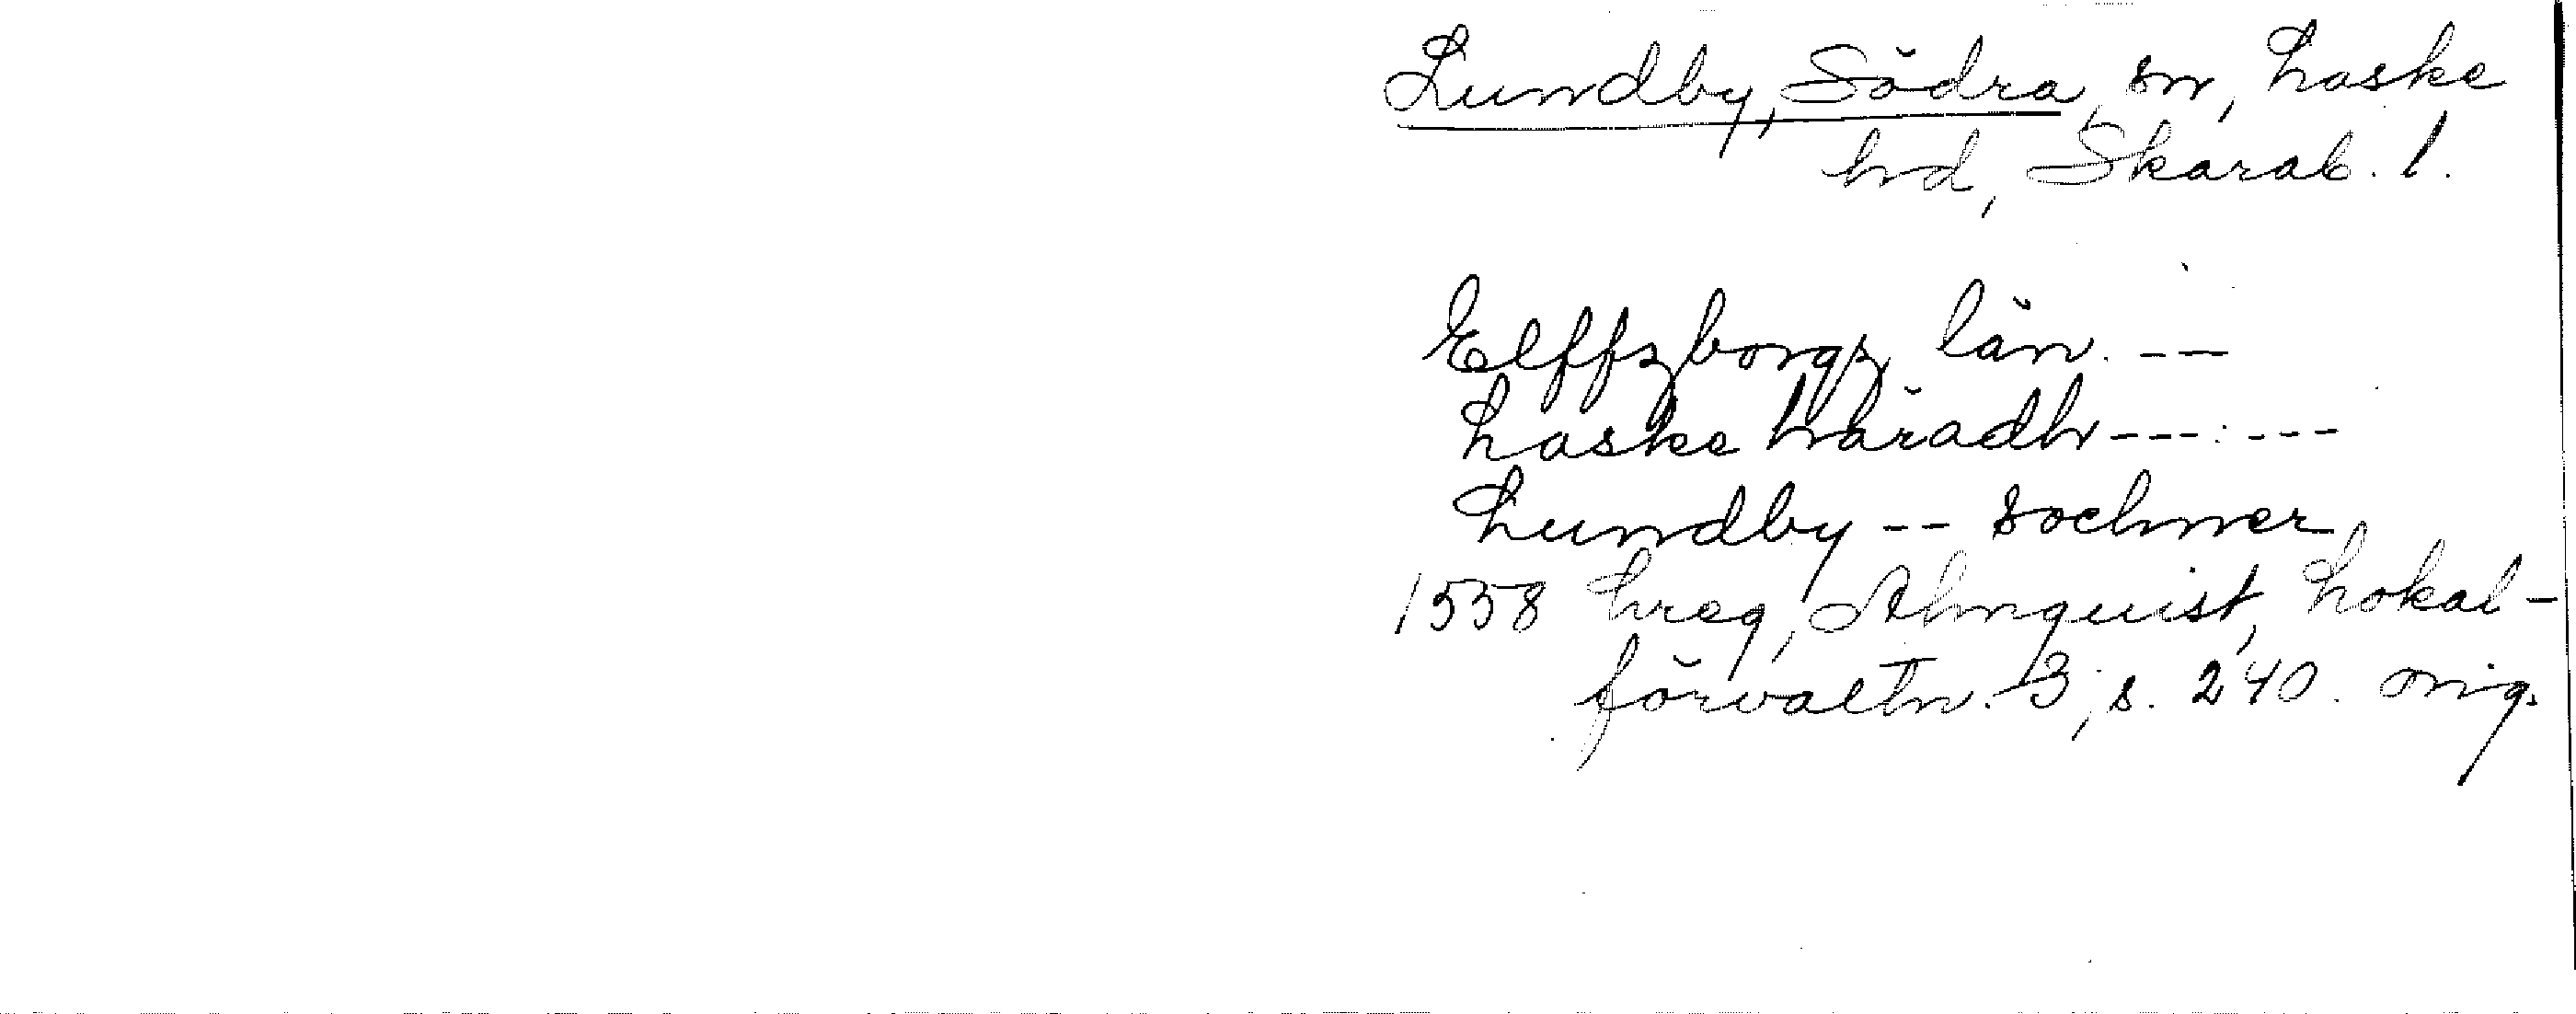 Lundby, Södra, sn, Laske
hd, Skarab. l.
Elffzborgz län. --
Laske häradh---:---
Lundby -- sochner
1558 hreg, Almquist, Lokal-
förvaltn. 3, s. 240. orig.